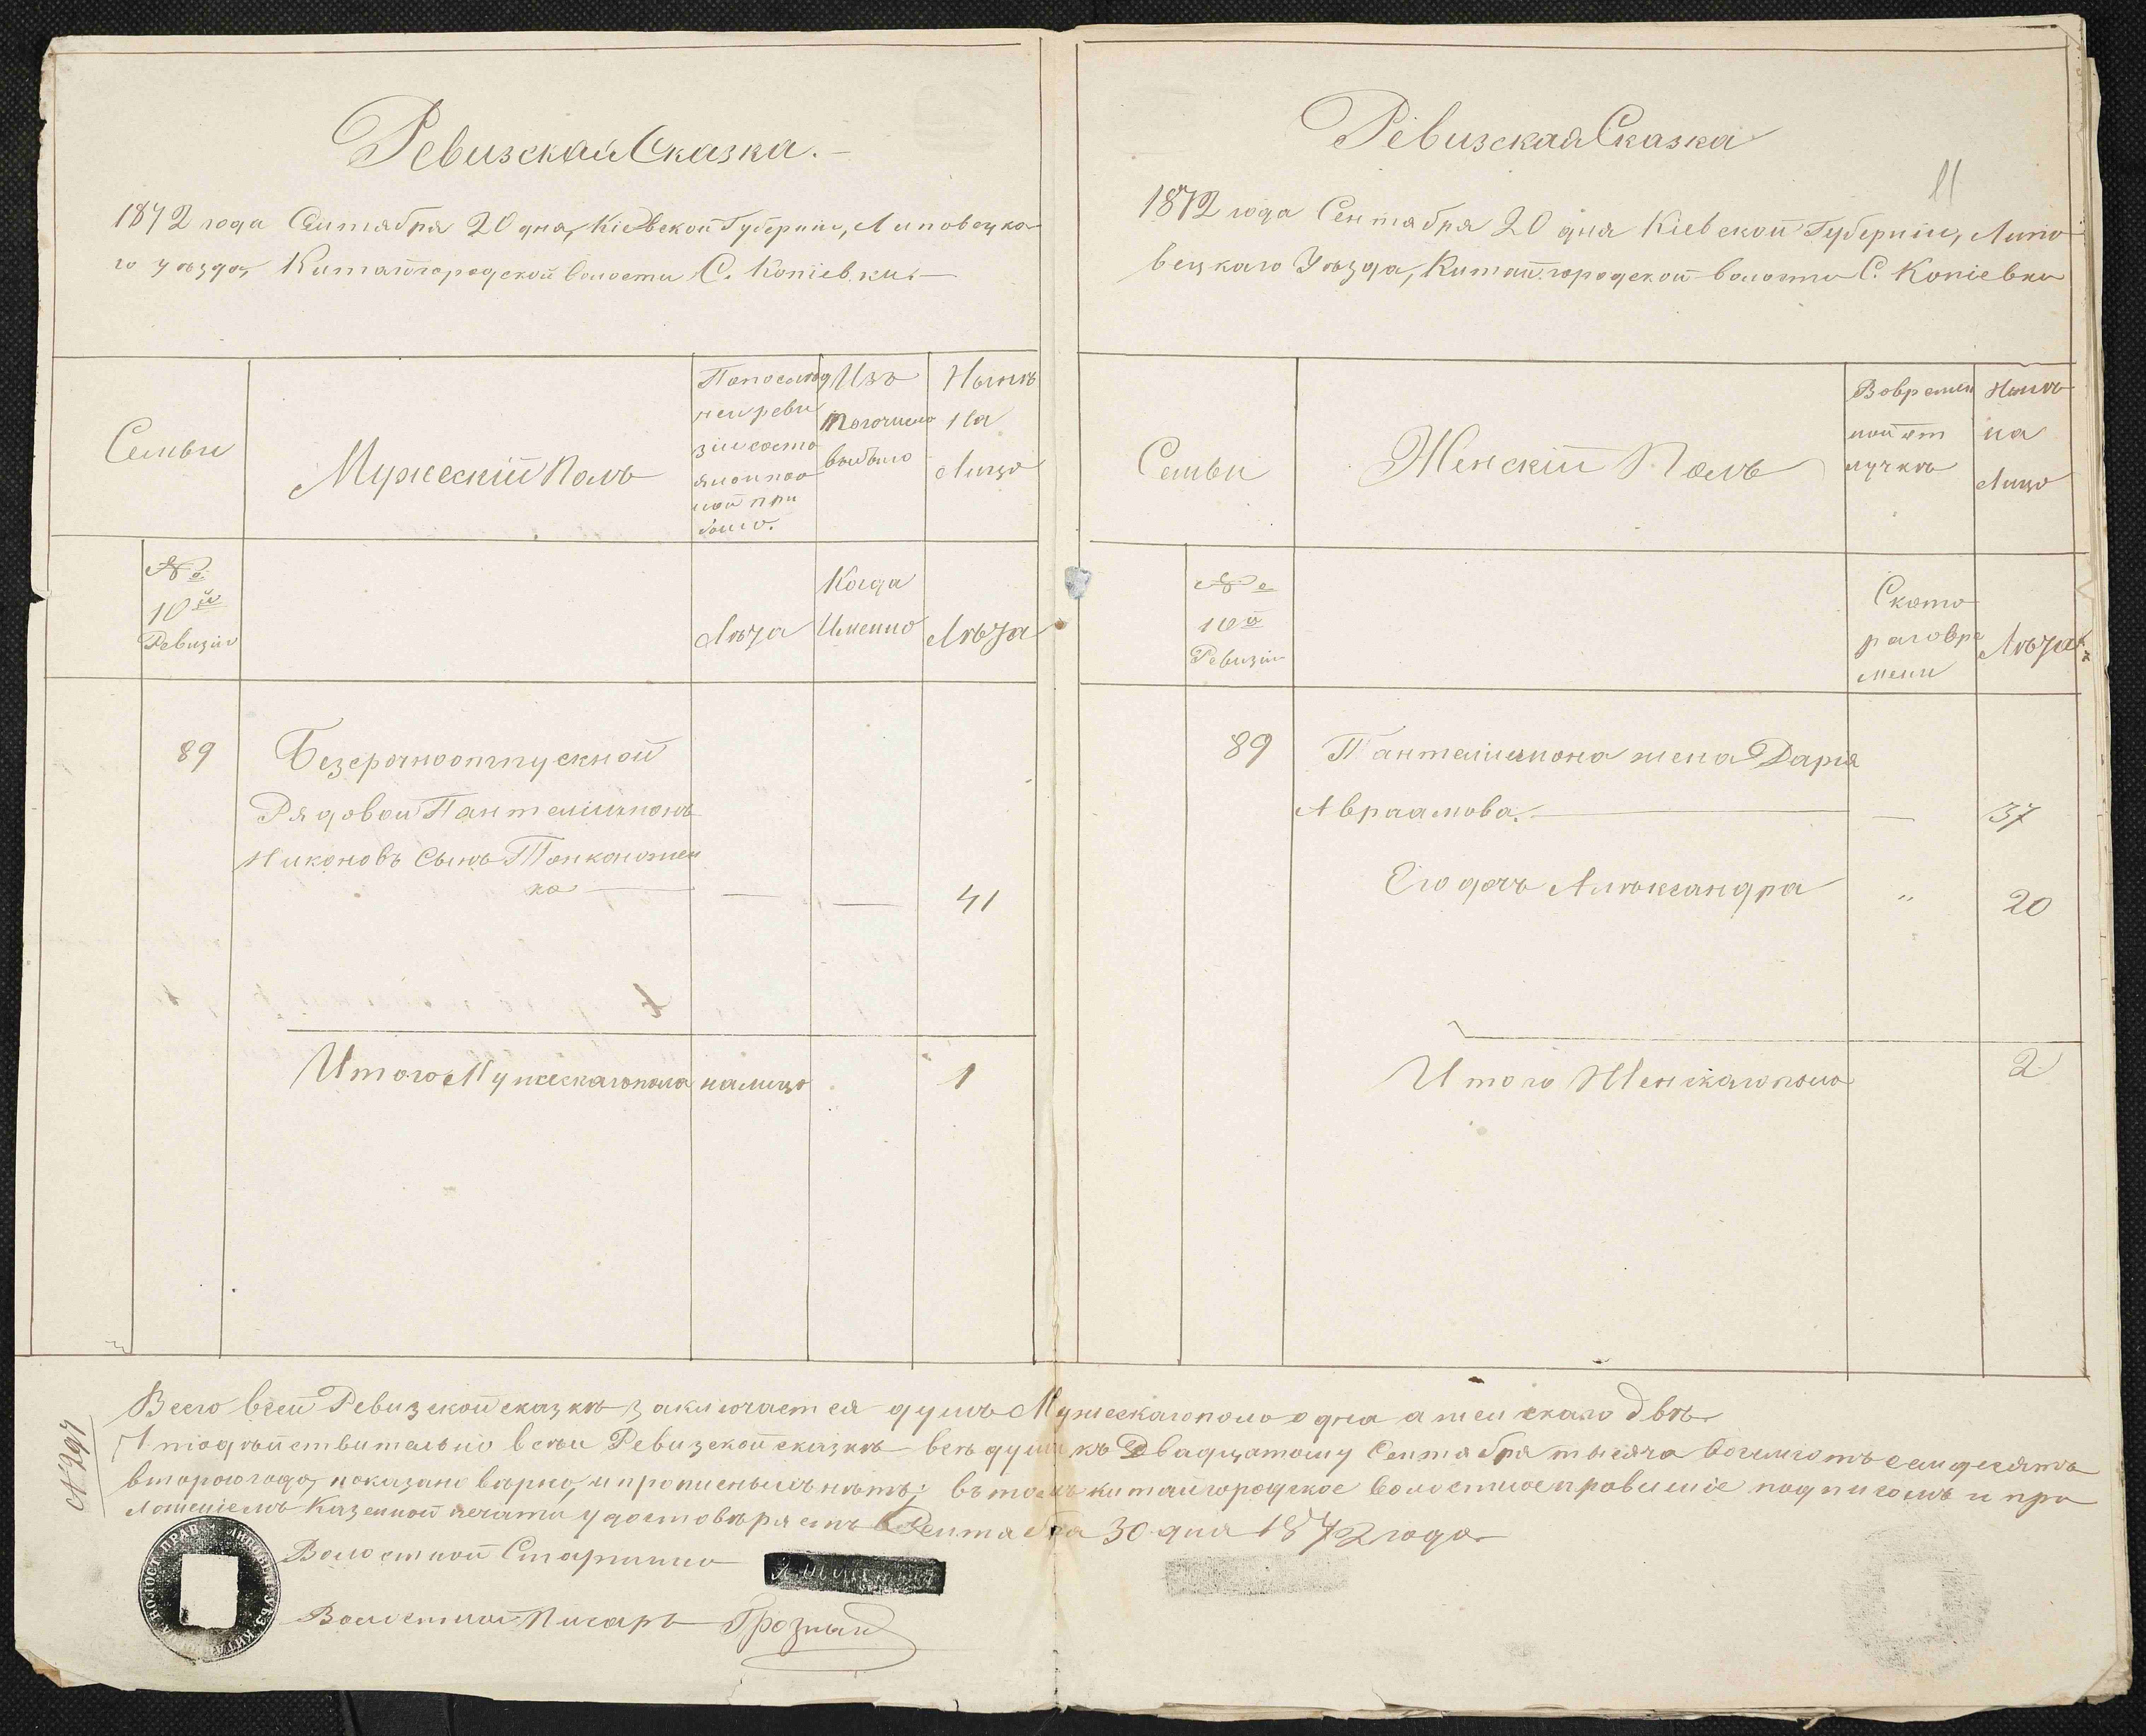 Ревизская Сказка.
1872 года Сентября 20 дня, Кіевской Губерніи, Липовецка
го уѣзда, Китайгородской волости С. Копіевки.
Семьи
Мужескій Полъ
Изъ
того числа
выбыло
Нынѣ
На
Лицо
№
10й
Ревизіи
Лѣта
Когда
Именно
Лѣта
89
Безсрочноотпускной
Рядовой Пантелиимонъ
Никоновъ Сынъ
ко
41
Итого Мужескаго пола на лицо
1
Ревизская Сказка
11
1872 года Сентября 20 дня Кіевской Губерніи, Липо
вецкаго Уѣзда, Китайгородской волости С. Копіевки
Семьи
Женскій Полъ
Во времен
ной от
лучкѣ
Нынѣ
на
Лицо
№
10й
Ревизіи
С кото
раго вре
мени
Лѣта
89
Пантелиимона жена Дарія
Авраамова.
37
Его дочь Александра
"
20
Итого Женскаго пола
2
Всего в сей Ревизской сказкѣ заключается душъ Мужескаго пола одна а женскаго двѣ
что дѣйствительно в сей Ревизской сказкѣ всѣ души къ Двадцатому Сентября тысяча восемсотъ семдесятъ
втораго года, показано вѣрно, и прописныхъ нѣтъ; въ томъ Китайгородское волостное правленіе подписомъ и при
ложеніемъ Казенной печати удостовѣряетъ Сентября 30 дня 1872 года
№ 291
Волостной Старшина
Волостной Писарь Грозный